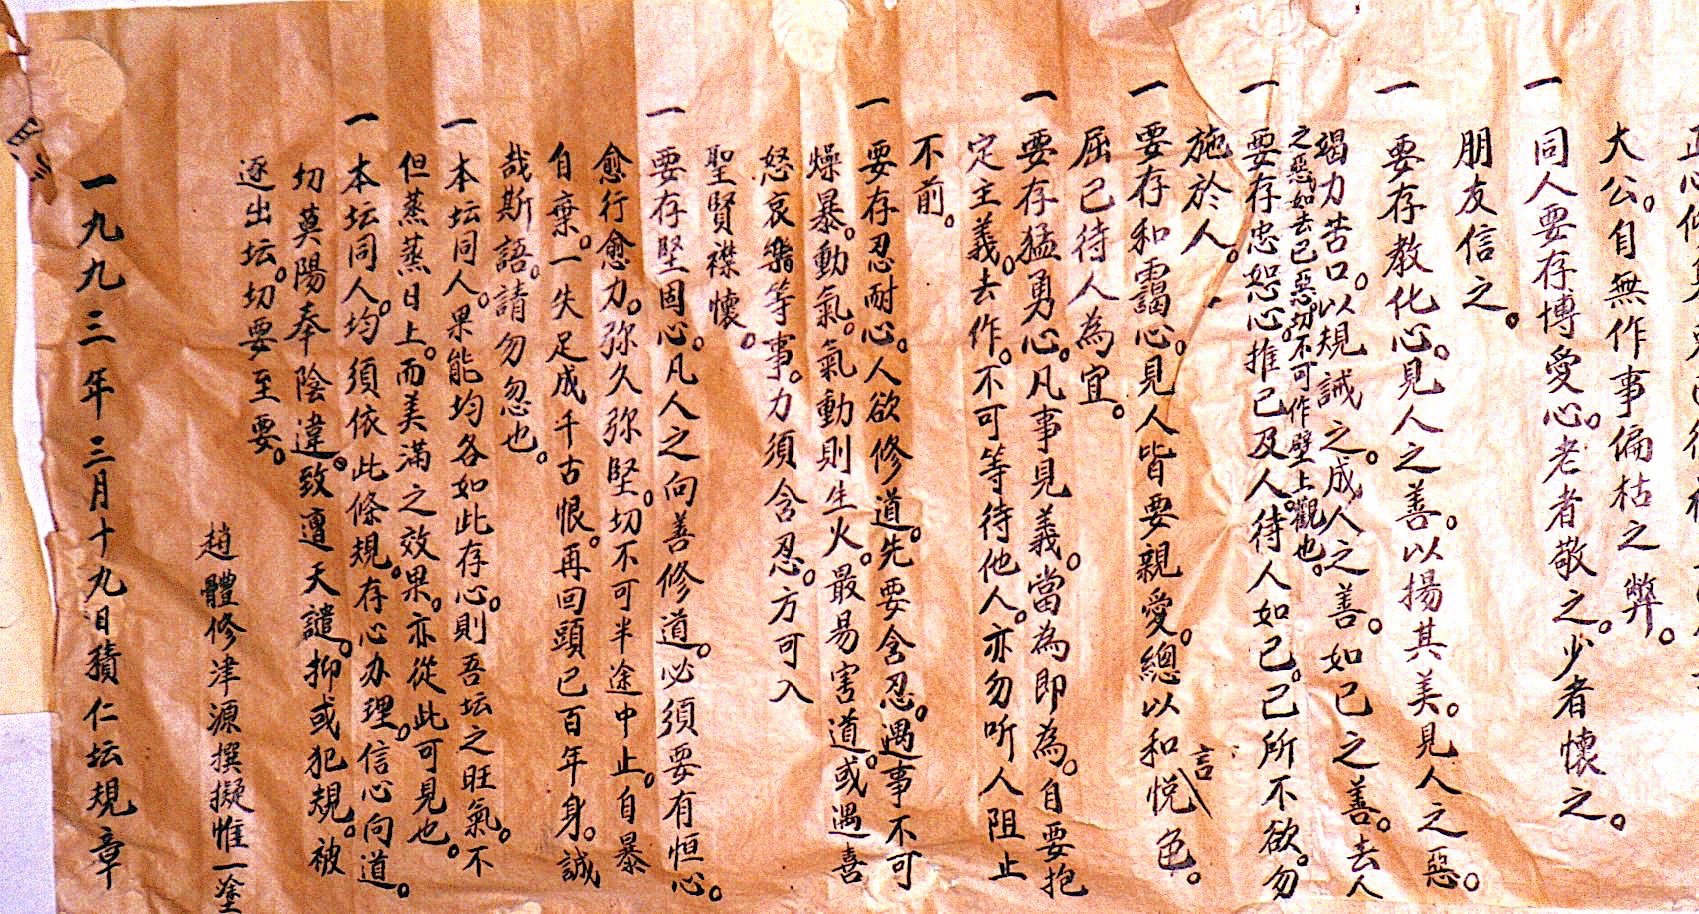 大公。自無作事偏枯之弊。
一同人要存博愛心。老者敬之。少者懷之。
朋友信之。
一要存教化心。見人之善。以揚其美。見人之惡。
竭力苦口。以規誡之。成人之善。如己之善。去人
之惡。如去己惡。切不可作壁上觀也。
一要存忠恕心。推己及人。待人如己。己所不欲。勿
施於人。
一要存和靄心。見人皆要親愛。總以和悅言色。
屈己待人為宜。
一要存猛勇心。凡事見義。當為即為。自要抱
定主義。去作。不可等待他人。亦勿听人阻止
不前。
一要存忍耐心。人欲修道。先要含忍。遇事不可
燥暴。動氣。氣動則生火。最易害道。或遇喜
怒哀樂等事。力須含忍。方可入
聖賢襟懷。
一要存堅固心。凡人之向善修道。必須要有恒心。
愈行愈力。弥久弥堅。切不可半途中止。自暴
自棄。一失足成千古恨。再回頭已百年身。誠
哉斯語。請勿忽也。
一本坛同人。果能均各如此存心。則吾坛之旺氣。不
但蒸蒸日上。而美滿之效果。亦從此可見也。
一本坛同人。均須依此條規。存心办理。信心向道。
切莫陽奉陰違。致遭天譴。抑或犯規。被
逐出坛。切要至要。
趙體修津源撰擬惟一塗
一九九三年三月十九日積仁坛規章